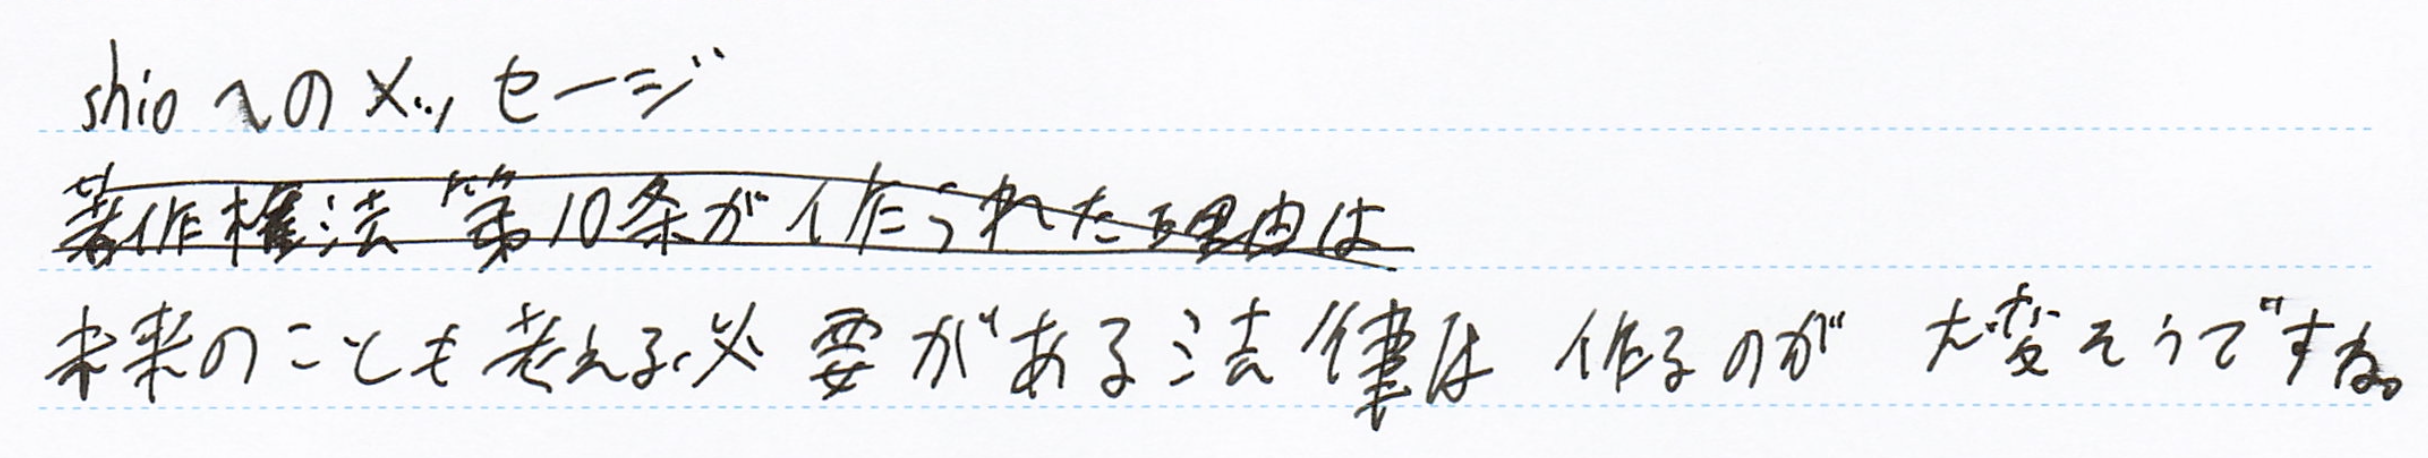 shioへのメッセージ
著作権法第10条が作られた理由は
未来のことも考える必要がある法律は作るのが大変そうですね。